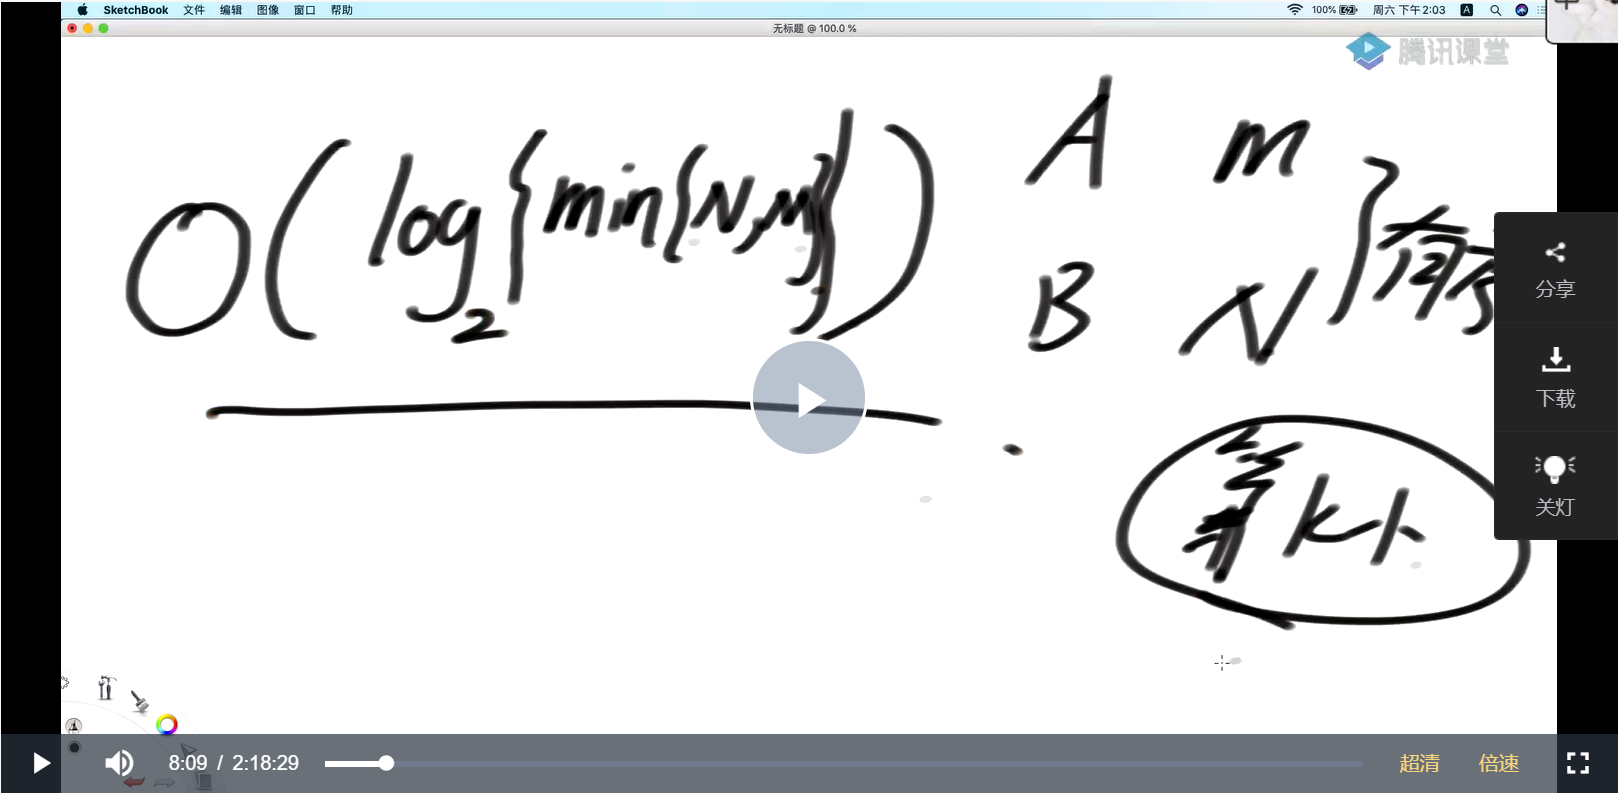 SketchBook 文件 编辑 图像 窗口 帮助 100% 周六 下午2:03 A
无标题 @ 100.0 %
腾讯课堂
O(log₂{min{N,M}}) A M
B N
有序
分享
下载
第K小
关灯
8:09 / 2:18:29 超清 倍速